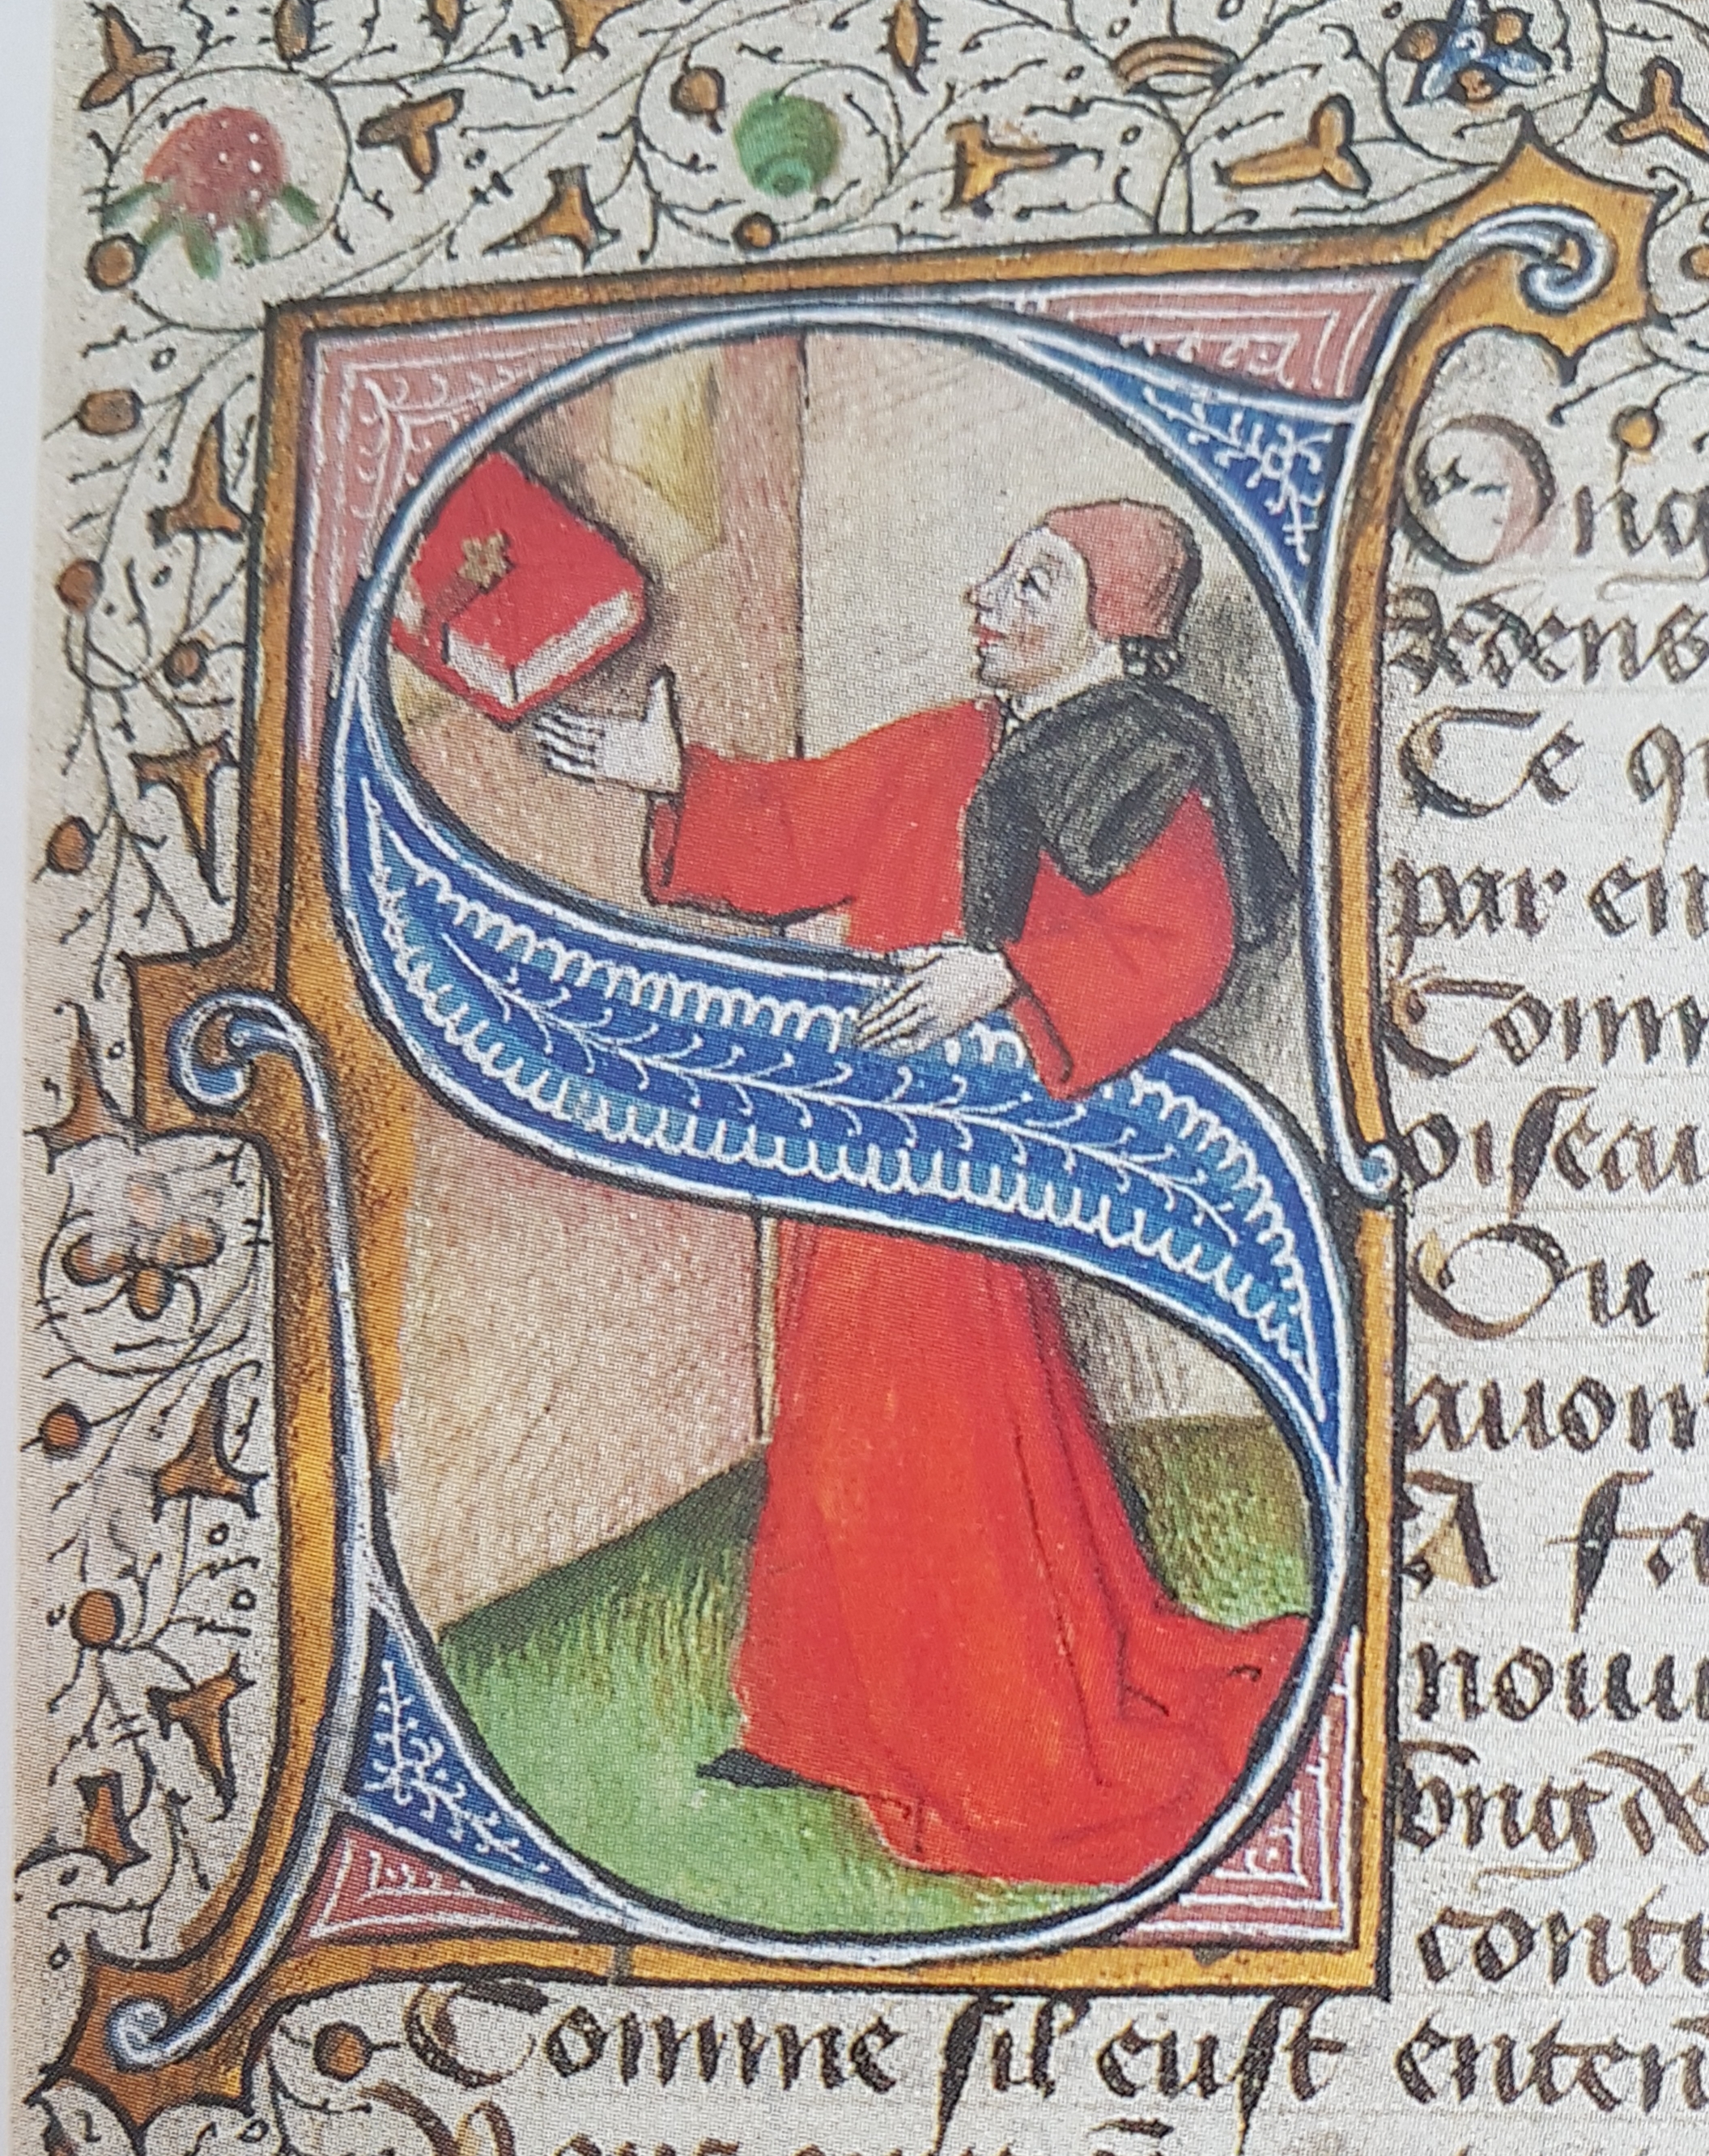 SOnq
Ce q
par en
Comm
oiseau
Ou
auom
A fa
nouu
vng
contr
Comme sil eust enten